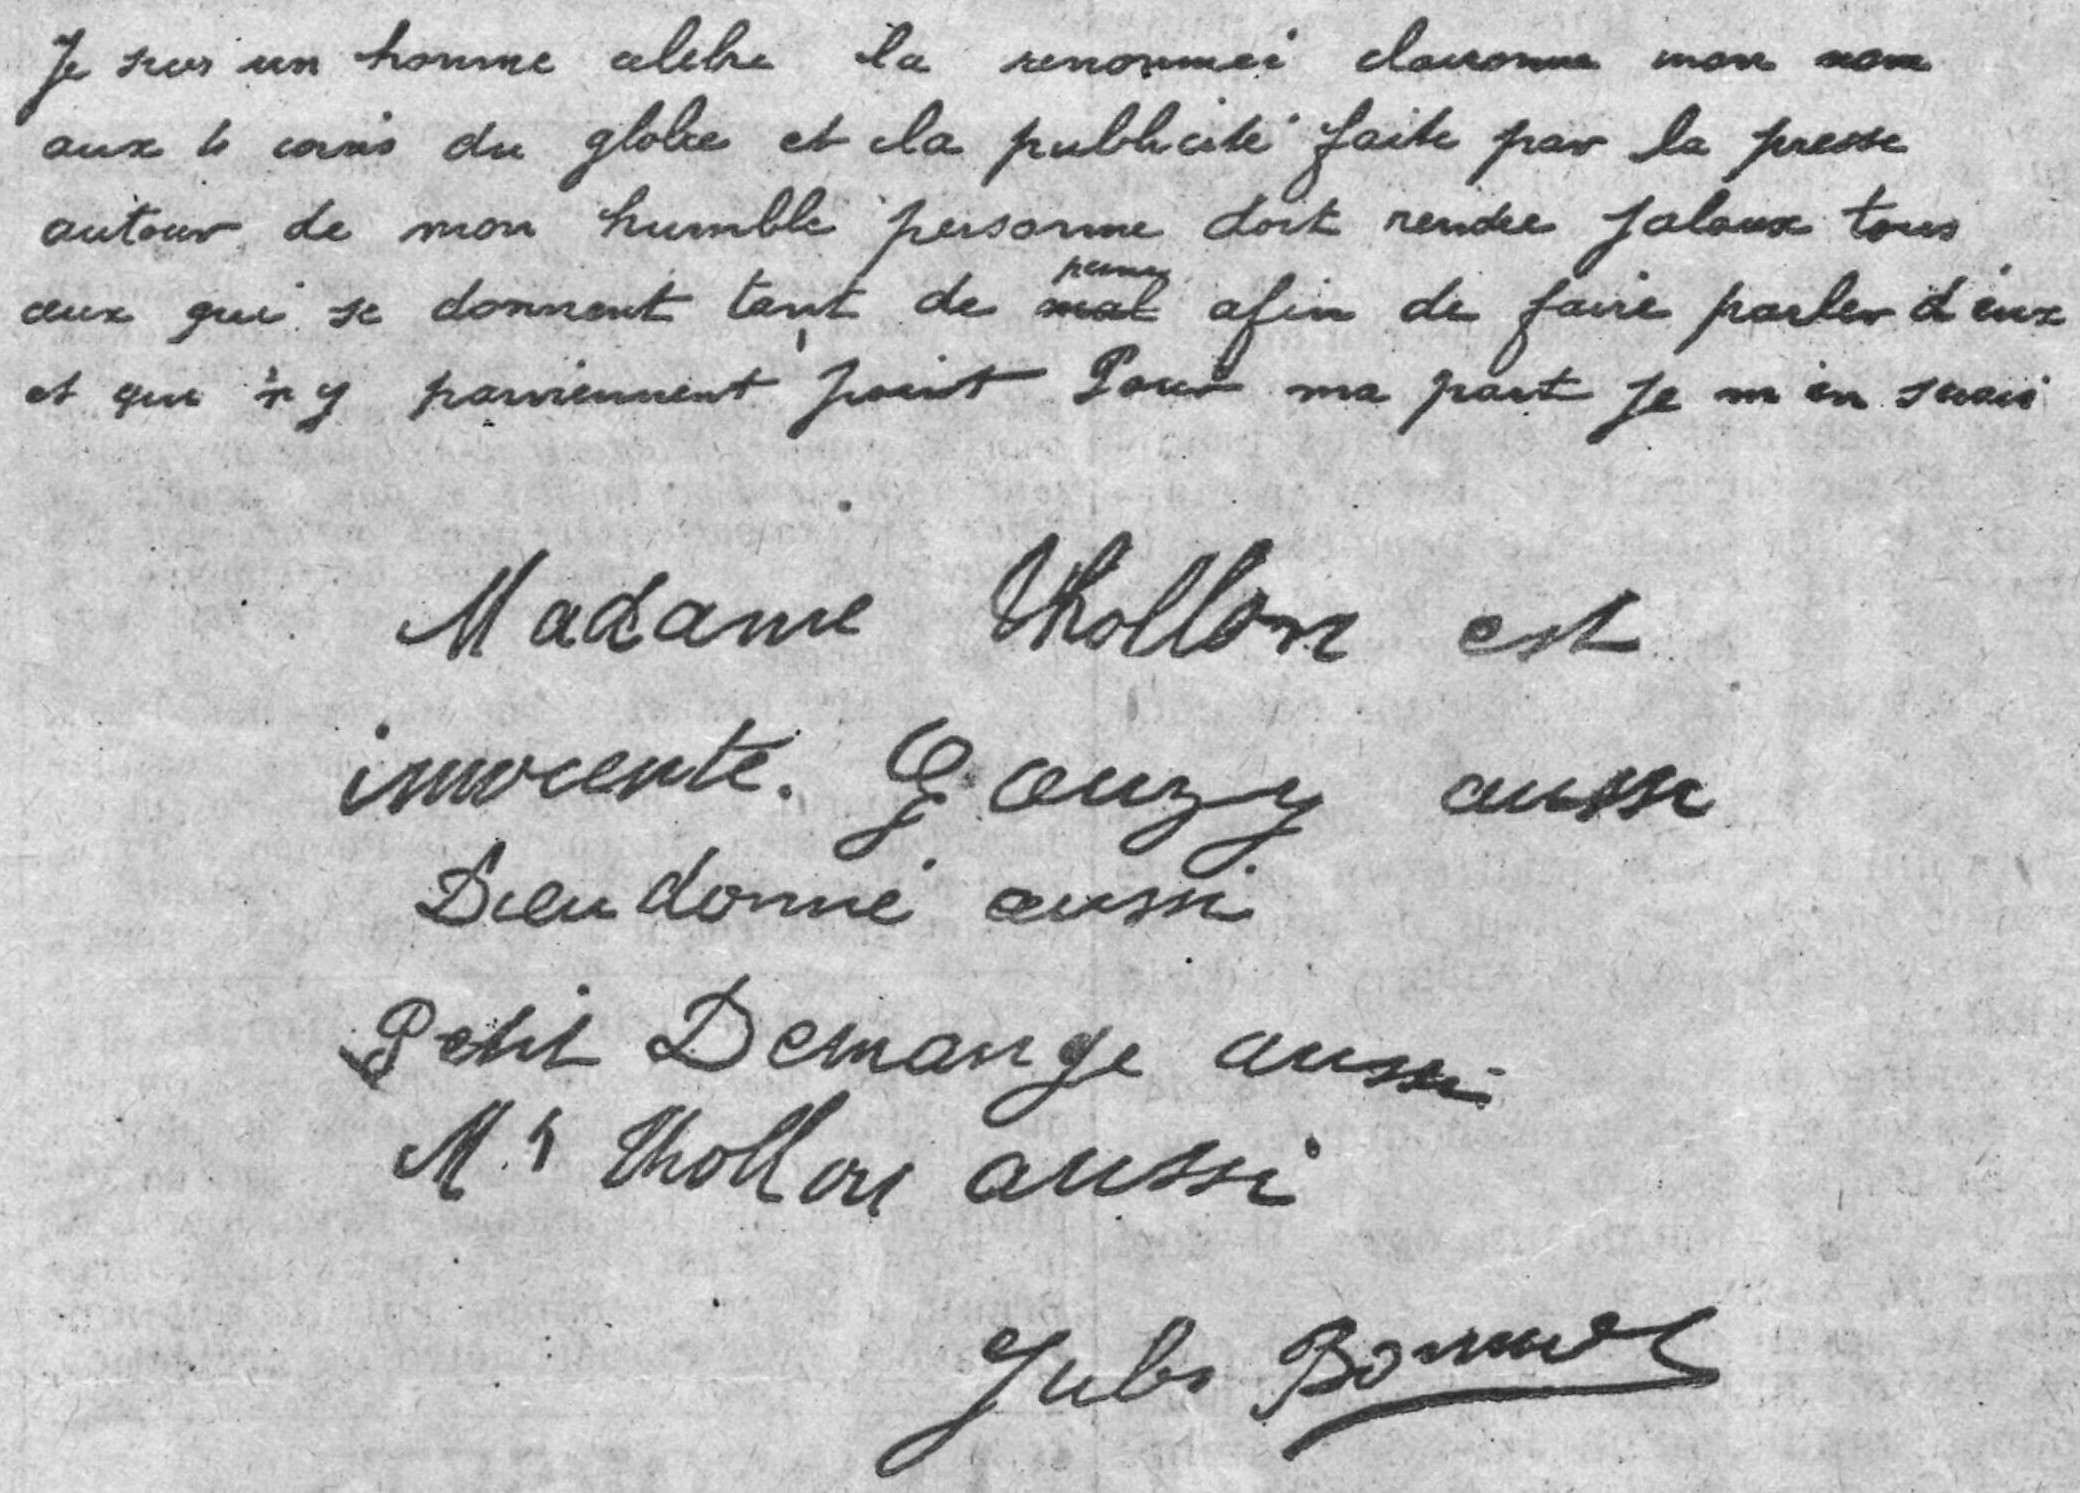 Je suis un homme celebre la renommeé claironne mon nom
aux 4 coins du globe et la publicité faite par la presse
autour de mon humble personne doit rendre jaloux tous
ceux qui se donnent tant de peine mal afin de faire parler d'eux
et qui n'y parviennent point Pour ma part je m'en serais
Madame Thollon est
innocente. Gouzy aussi
Dieudonné aussi
Petit Demange aussi
Mr Thollon aussi
Jules Bonnot